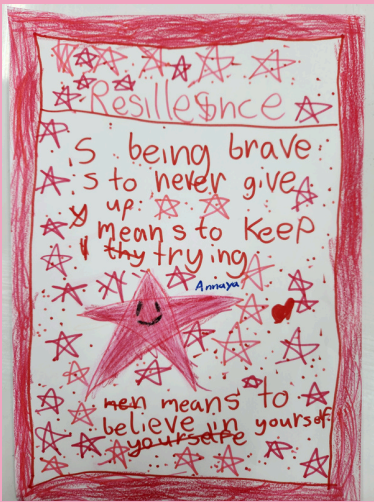 Resillesnce
S being brave
S to never give
y up.
means to keep
thy trying
Annaya
men means to
believe in yourself
yourselfe